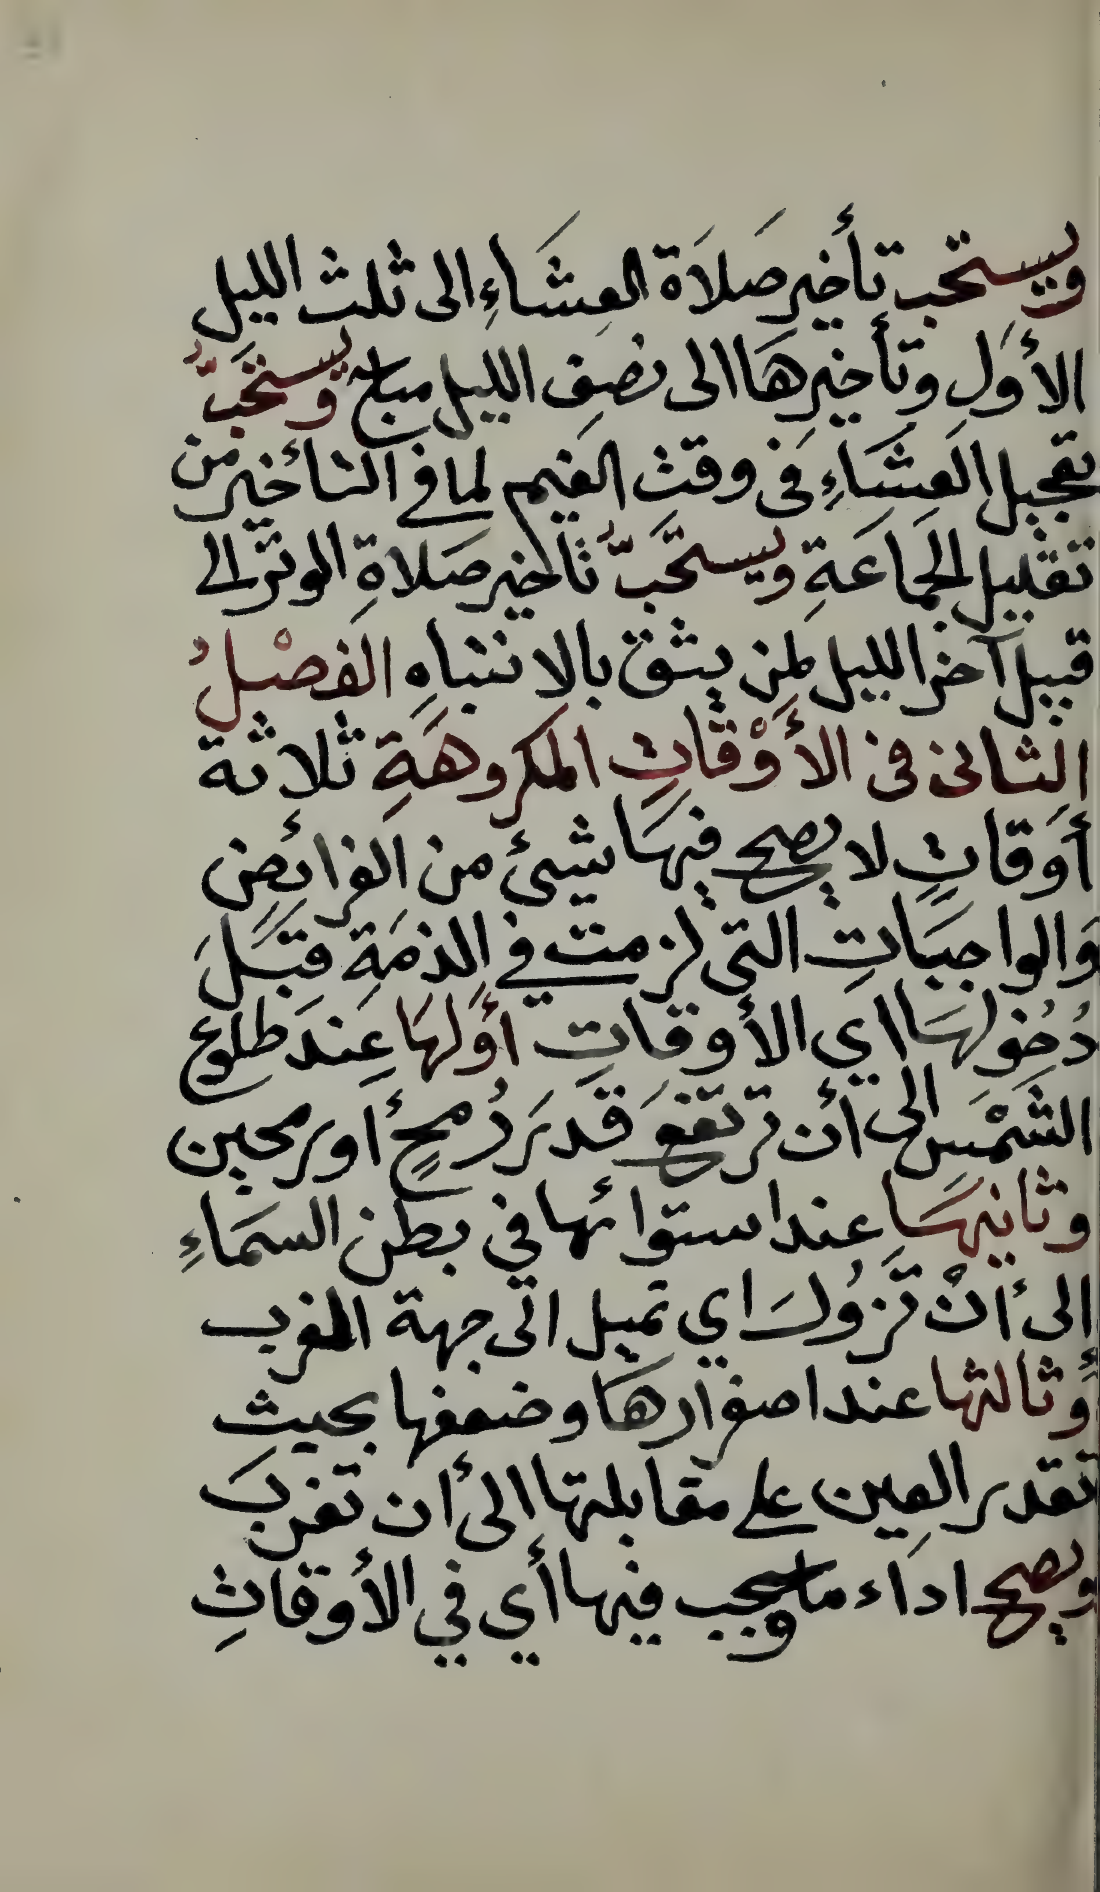 ويستحب تأخير صلاة العشاءِ الى ثلث الليل
الأول وتأخيرها الى نصف الليل مباح ويستحبُّ
تعجيل العشاءِ في وقت الغيم لما في التأخير من
تقليل الجماعةِ ويستحبُّ تأخير صلاةِ الوتر الى
قبيل آخر الليل لمن يثق بالانتباهِ الفصْلُ
الثاني في الأوْقاتِ المكروهَةِ ثلاثة
أوقاتٍ لا يصح فيها شيئ من الفرائض
والواجباتِ التي لزمت في الذمةِ قبلَ
دُخولها اي الأوقاتِ أولها عِند طلوع
الشمْسِ الى أن ترتفعَ قدرَ رُمحٍ أو رمحين
وثانيها عند استوائها في بطن السماءِ
الى أنْ تَزُولَ اي تميل الى جهة المغرب
وثالثها عند اصفرارها وضعفها بحيث
تقدر العين على مقابلتها الى أن تغربَ
ويصح اداء ما وجب فيها أي في الأوقاتِ